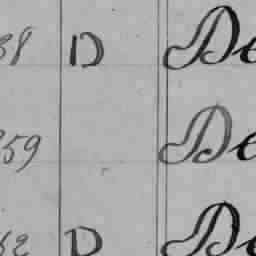 38 D De
359 De
62 D De